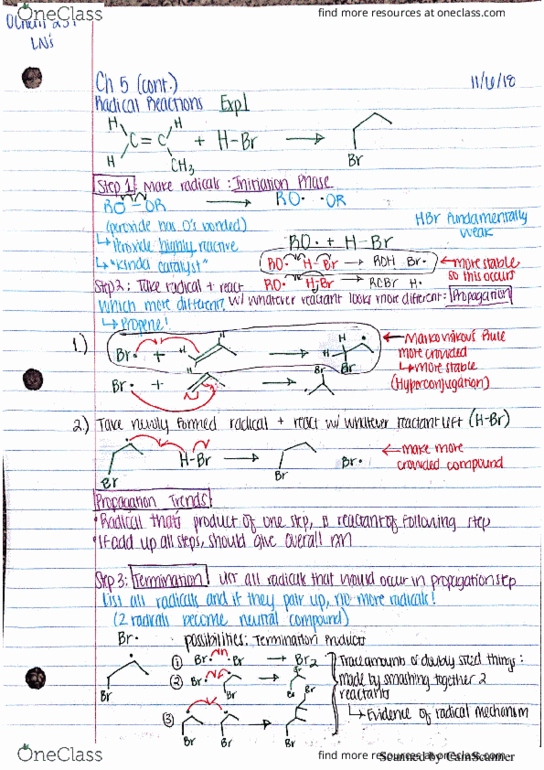 OneClass
find more resources at oneclass.com
Ch 5 (cont.)
11/6/18
Radical Reactions Exp1
H H
C=C + H-Br
H CH3
Br
Step 1: Make radicals: Initiation Phase
RO-OR RO· ·OR
(peroxide has O's bonded)
HBr Fundamentally weak
↳ Peroxide highly reactive
RO· + H-Br
↳ "kinda catalyst"
RO· H-Br → ROH Br· ← more stable so this occurs
Step 2: Take radical + react RO· H-Br → ROBr H·
which more different, w/ whatever reactant looks more different: Propagation
↳ Propene!
1.) Br· + H
H H Br
← Markovnikovs Rule
more crowded
↳ more stable
(Hyperconjugation)
Br· + Br
2.) Take newly formed radical + react w/ whatever reactant left (H-Br)
Br H-Br → Br Br·
← make more crowded compound
Propagation Trends
• Radical that's product of one step, is reactant of following step
• If add up all steps, should give overall rxn
Step 3: Termination! List all radicals that would occur in propagation step
List all radicals and if they pair up, no more radicals!
(2 radicals become neutral compound)
Br· possibilities: Termination Products
① Br· ·Br → Br2
Br
② Br· Br Br Br
③ Br Br Br Br
Trace amounts of doubly sized things:
made by smashing together 2
reactants
↳ Evidence of radical mechanism
OneClass
find more resources at oneclass.com
Scanned by CamScanner